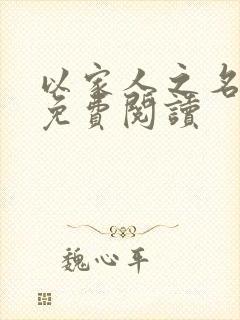 以家人之名
免費閱讀
魏心平